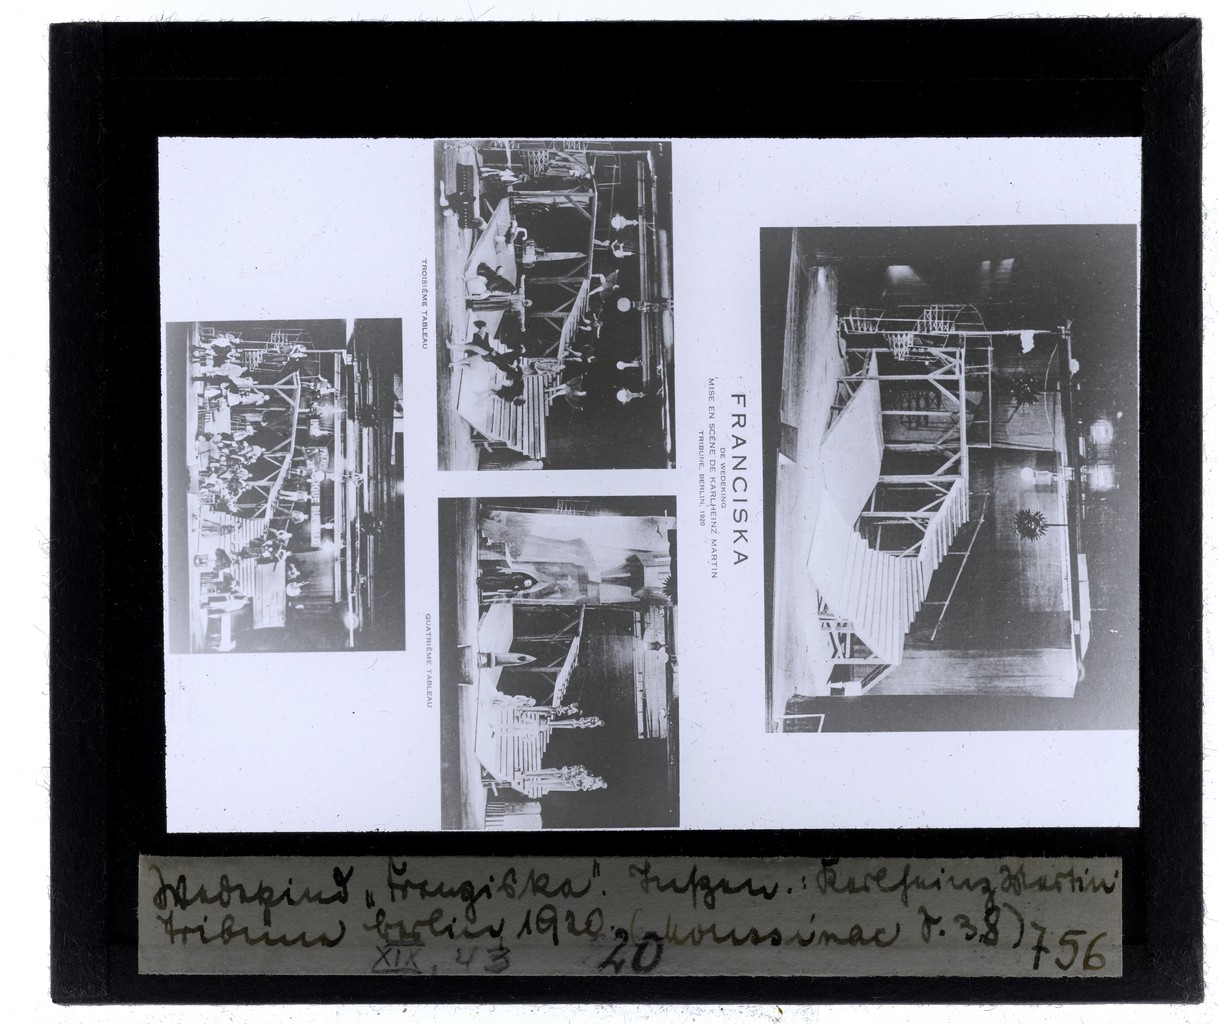 FRANCISKA
DE WEDEKING
MISE EN SCÈNE DE KARLHEINZ MARTIN
TRIBUNE, BERLIN, 1920
TROISIÈME TABLEAU
QUATRIÈME TABLEAU
Wedekind „Franziska". Inszen.: Karlheinz Martin
Tribüne Berlin 1920. (Moussinac S. 38)
XIX, 43 20 756